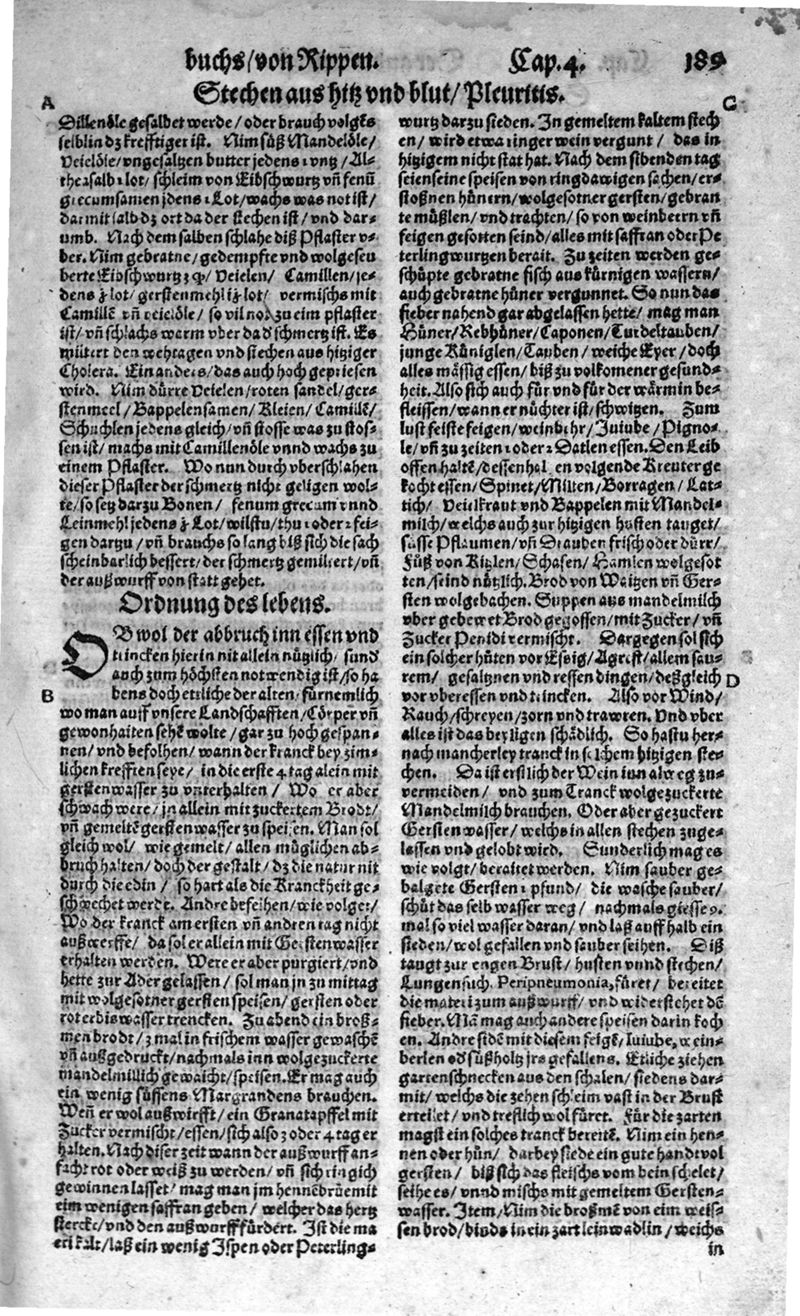 buchs/von Rippen. Cap.4. 189
Stechen aus hitz vnd blut/ Pleuritis.
A
Dillenöle gesalbet werde/oder brauch volgēts
selblin dz krefftiger ist. Nim süß Mandelöle/
Veielöle/vngesaltzen butter jedens 1 vntz/Al-
theasalb 1 lot/ schleim von Eibschwurtz vñ fenū
grecumsamen jdens 1 Lot/wachs was not ist/
darmit salb dz ort da der stechen ist/vnd dar-
umb. Nach dem salben schlahe diß Pflaster v-
ber. Nim gebratne/gedempfte vnd wolgeseu
berte Eibschwurtz Veielen/ Camillen/je-
dens lot/gerstenmehl lot/ vermischs mit
Camillē vñ veielöle/ so vil not zu eim pflaster
ist/vñ schlachs warm vber da dʼ schmertz ist. Es
miltert den wehtagen vnd stechen aus hitziger
Cholera. Ein anders/das auch hoch gepriesen
wird. Nim dürre Veielen/roten sandel/ger-
stenmeel/Bappelensamen/Kleien/Camillē/
jedens gleich/vñ stosse was zu stos-
sen ist/machs mit Camillenöle vnnd wachs zu
einem Pflaster. Wo nun durch vberschlahen
dieser Pflaster der schmertz nicht geligen wol-
te/so setz darzu Bonen/ fenum grecum vnnd
Leinmehl jedens Lot/wilstu/thu 1 oder 2 fei-
gen dartzu/vñ brauchs so lang biß sich die sach
scheinbarlich bessert/der schmertz gemiltert/vñ
der außwurff von statt gehet.
Ordnung des lebens.
OB wol der abbruch inn essen vnd
trincken hierin nit allein nützlich/sundʼ
auch zum höchsten notwendig ist/so ha
B
bens doch ettliche der alten/fürnemlich
wo man auff vnsere Landschafften/Cörper vñ
gewonhaiten sehē wolte/gar zu hoch gespan-
nen/vnd befolhen/wann der kranck bey zim-
lichen krefften seye/ in die erste 4 tag alein mit
gerstenwasser zu vnterhalten/ Wo er aber
schwach were/jn allein mit zuckertem Brodt/
vñ gemeltē gerstenwasser zu speisen. Man sol
gleich wol/ wie gemelt/allen müglichen ab-
bruch halten/doch der gestalt/dz die natur nit
durch die edin/ so hart als die Kranckheit ge-
schwechet werde. Andre befelhen/wie volget/
Wo der kranck am ersten vñ andren tag nicht
außwerffe/ da sol er allein mit Gerstenwasser
erhalten werden. Were er aber purgiert/vnd
hette zur Ader gelassen/ sol man jn zu mittag
mit wolgesotner gersten speisen/gersten oder
rot erbis wasser trencken. Zu abend ein broß-
men brodt/3 mal in frischem wasser gewaschē
vñ außgedruckt/nachmals inn wolgezuckerte
mandelmillich gewaicht/speisen. Er mag auch
ein wenig süssens Margrandens brauchen.
Weñ er wol außwirfft/ein Granatapffel mit
Zucker vermischt/essen/sich also 3 oder 4 tag er
halten. Nach diser zeit wann der außwurff an-
facht rot oder weiß zu werden/ vñ sich ringich
gewinnen lasset/mag man jm hennēbrüe mit
eim wenigen saffran geben/ welcher das hertz
stercke/vnd den außwurff fürdert. Ist die ma
teri kalt/laß ein wenig Ispen oder Peterling-
C
wurtz darzu sieden. In gemeltem kaltem stech
en/wird etwa ringer wein vergunt/ das in
hitzigem nicht stat hat. Nach dem sibenden tag
seien seine speisen von ringdawigen sachen/er-
stoßnen hünern/wolgesotner gersten/gebran
te müßlen/vnd trachten/so von weinbeern vñ
feigen gesotten seind/alles mit saffran oder Pe
terlingwurtzen berait. Zu zeiten werden ge-
schüpte gebratne fisch aus kürnigen wassern/
auch gebratne hüner vergunnet. So nun das
fieber nahend gar abgelassen hette/mag man
Hüner/Rebhüner/Caponen/Turdeltauben/
junge Küniglen/Tauben/weiche Eyer/doch
alles mässig essen/biß zu volkomener gesund-
heit. Also sich auch für vnd für der wärmin be-
fleissen/wann er nüchter ist/schwitzen. Zum
lust feiste feigen/weinbehr/Iuiube/Pigno-
le/vñ zu zeiten 1 oder 2 Datlen essen. Den Leib
offen haltē/dessenhalben volgende Kreuter ge
kocht essen/Spinet/Milten/Borragen/Lat-
tich/ Veielkraut vnd Bappelen mit Mandel-
milch/welchs auch zur hitzigen husten tauget/
süsse Pflaumen/vñ Drauben frisch oder dürr/
Füß von Kitzlen/Schafen/Hamlen wolgesot
ten/seind nützlich. Brod von Waitzen vñ Ger-
sten wolgebachen. Suppen aus mandelmilch
vber gebewet Brod gegossen/mit Zucker/ vñ
Zucker Penidi vermischt. Dargegen sol sich
ein solcher hüten vor Essig/Agrest/allem sau-
rem/ gesaltznen vnd ressen dingen/deßgleich
D
vor vberessen vnd trincken. Also vor Wind/
Rauch/schreyen/zorn vnd trawren. Vnd vber
alles ist das beyligen schädlich. So hastu her-
nach mancherley tranck in solchem hitzigen ste-
chen. Da ist erstlich der Wein inn alweg zu-
vermeiden/ vnd zum Tranck wolgezuckerte
Mandelmilch brauchen. Oder aber gezuckert
Gerstenwasser/welchs in allen stechen zuge-
lassen vnd gelobt wird. Sunderlich mag es
wie volgt/beraitet werden. Nim sauber ge-
balgete Gersten 1 pfund/ die wasche sauber/
schüt das selb wasser weg/ nachmals giesse 9.
mal so viel wasser daran/ vnd laß auff halb ein
sieden/wol gefallen vnd sauber seihen. Diß
taugt zur engen Brust/ husten vnnd stechen/
Lungensuch. Peripneumonia, füret/ bereitet
die materi zum außwurff/ vnd widerstehet dē
fieber. Mā mag auch andere speisen darin koch
en. Andre sidē mit diesem feigē/Iuiube, wein-
berlen odʼ süßholtz jrs gefallens. Etliche ziehen
gartenschnecken aus den schalen/siedens dar-
mit/welchs die zehen schleim vast in der Brust
erteilet/vnd treflich wol füret. Für die zarten
magst ein solches tranck bereitē. Nim ein hen-
nen oder hün/ darbey siede ein gute handtvol
gersten/ biß sich das fleischs vom bein schelet/
seihe es/vnnd mischs mit gemeltem Gersten-
wasser. Item/Nim die broßmē von eim weis-
sen brod/binds in ein zart leinwadlin/weichs
in